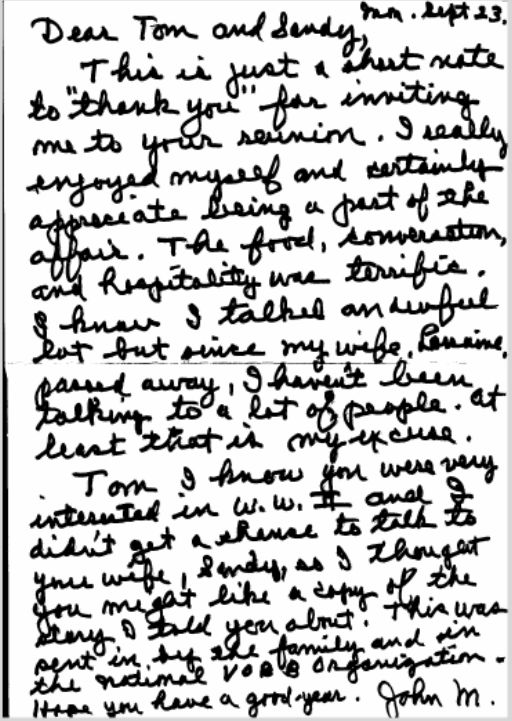 Mon. Sept 23.
Dear Tom and Sandy,
This is just a short note
to "thank you" for inviting
me to your reunion. I really
enjoyed myself and certainly
appreciate being a part of the
affair. The food, conversation,
and hospitality was terrific.
I know I talked an awful
lot but since my wife, Lorraine,
passed away, I haven't been
talking to a lot of people. At
least that is my excuse.
Tom I know you were very
interested in W.W. II and I
didn't get a chance to talk to
your wife, Sandy, so I thought
you might like a copy of the
story I told you about. This was
sent in by the family and in
the national VOBB Organization.
Hope you have a good year. John M.